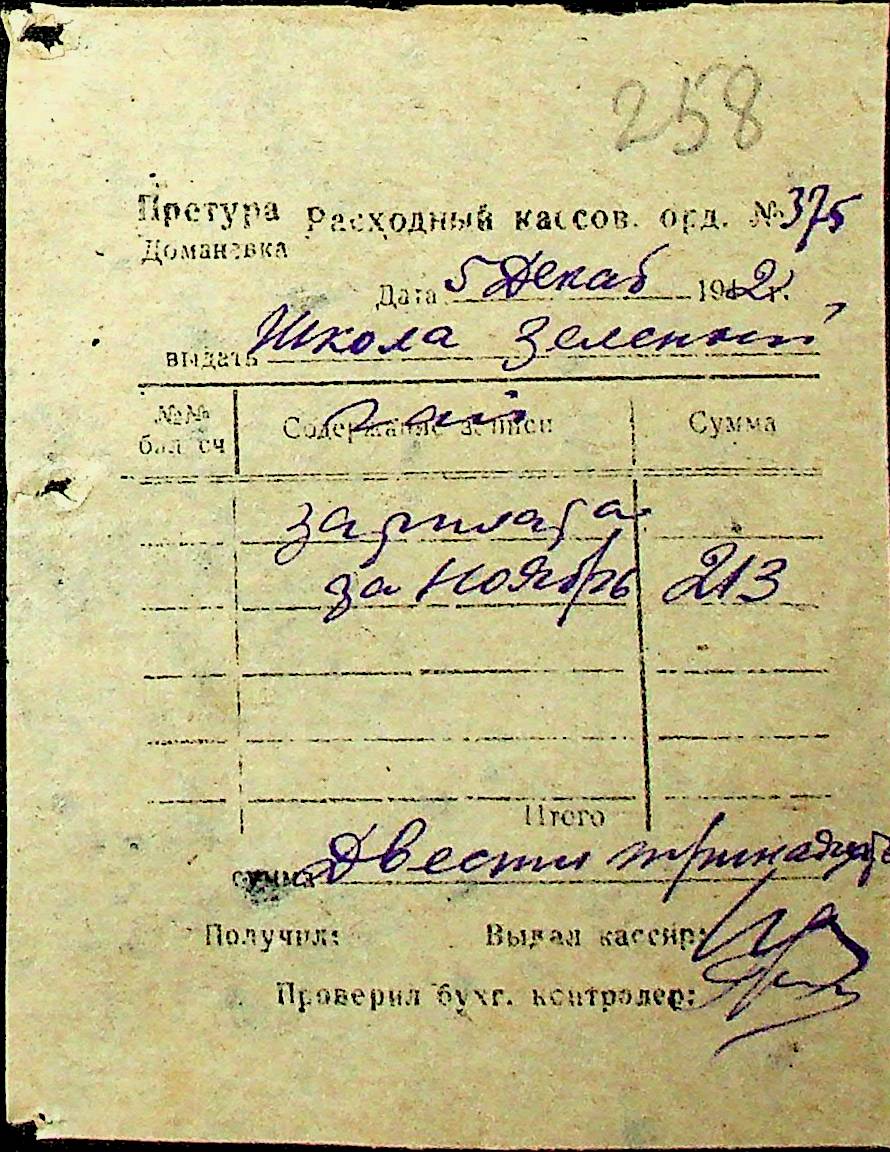 258
Претура Расходный кассов. орд. № 375
Домановка
Дата 5 Декаб 1942 г.
выдать Школа Зеленый
Гай
№№ бал сч Содержание записи Сумма
зарплата
за ноябрь 213
Итого
сумма Двести тринадцать
Получил: Выдал кассир:
Проверил бухг. контролер: